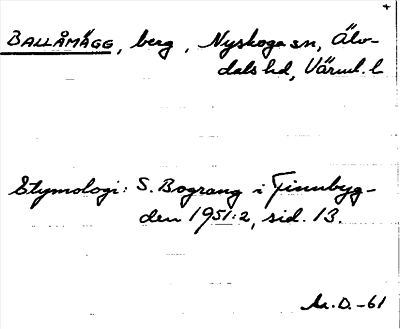 BALLÅMÄGG, berg, Nyskoga sn, Älv-
dals hd, Värml. l.
Etymologi: S. Bograng i Finnbyg-
den 1951:2, sid. 13.
Aa. D. -61